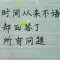 时间从来不语
却回答了
所有问题